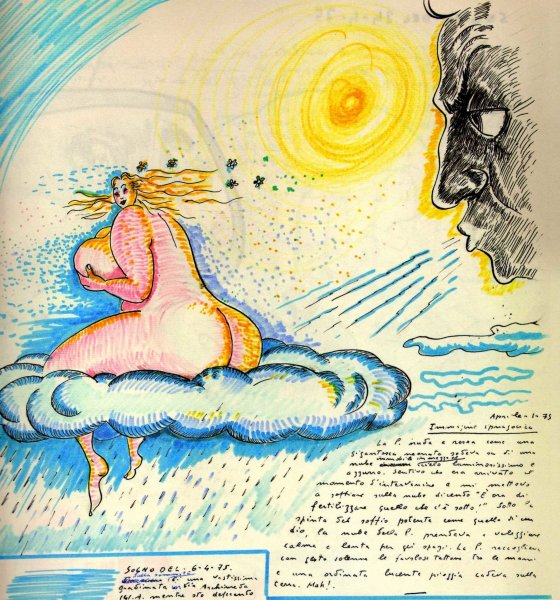 Aprile 1975
Immagine ipnagogica
La P. nuda e rosea come una
gigantesca neonata sedeva su di una
nube in mezzo al cielo luminosissimo e
azzurro. Sentivo che era arrivato il
momento d'intervenire e mi mettevo
a soffiare sulla nube dicendo "È ora di
fertilizzare quello che c'è sotto." Sotto la
spinta del soffio potente come quello di un
dio, la nube della P. prendeva a veleggiare
calma e lenta per gli spazi. La P. raccoglieva
con gesto solenne le favolose tettone tra le mani
e una ordinata lucente pioggia cadeva sulla
terra. Mah!
SOGNO DEL: 6-4-75.
di una vastissima
mentre sto